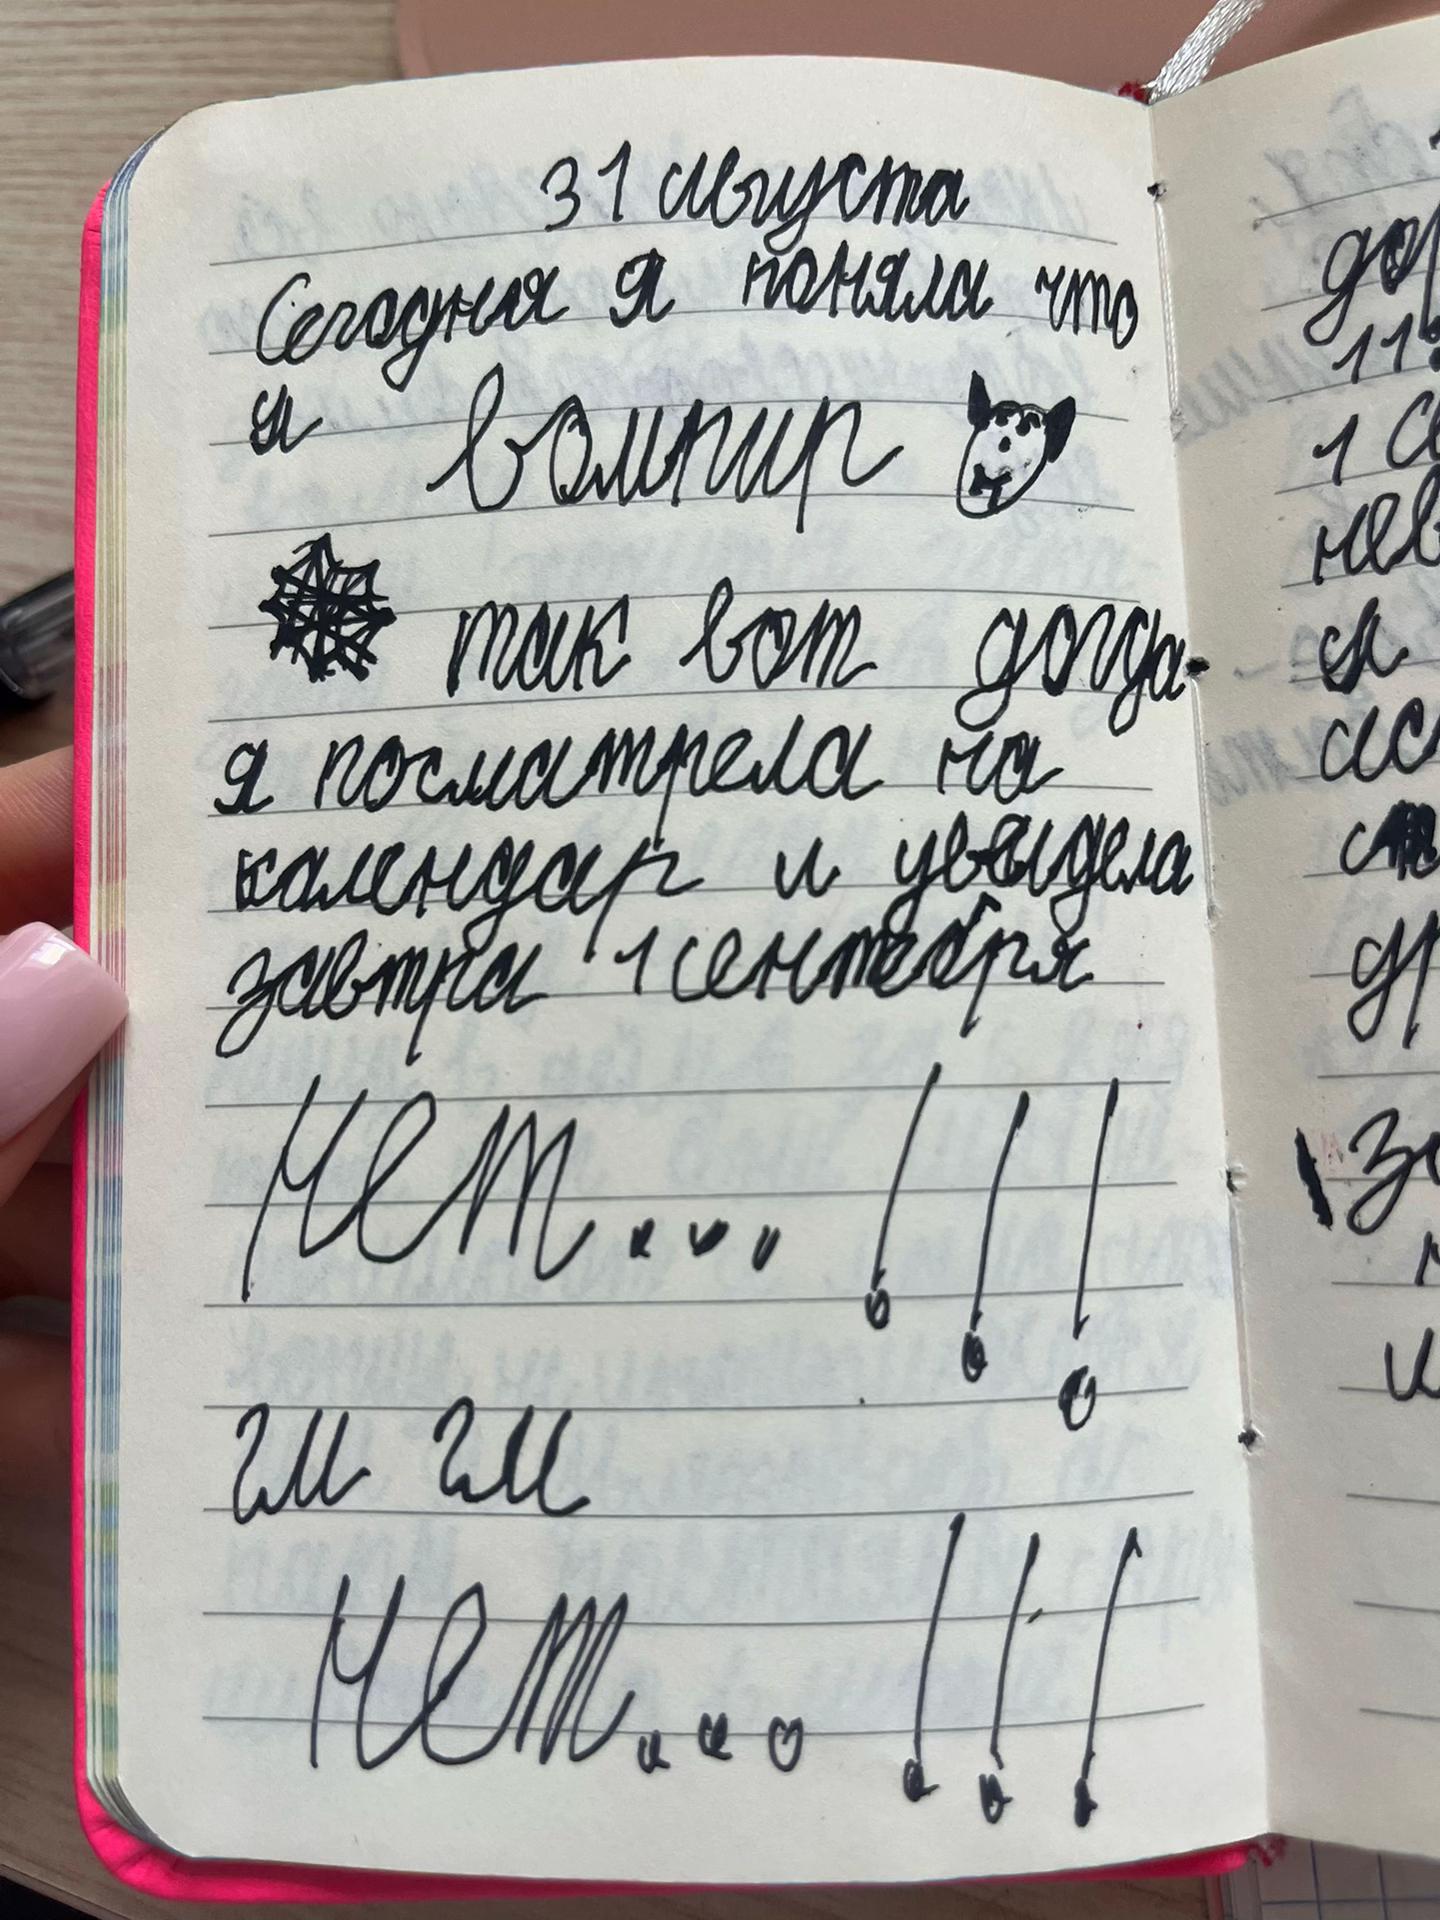 31 августа
Сегодня я поняла что
я вомпир
так вот догда
я посматрела на
календар и увидела
завтра 1 сентебря
нет... !!!
гм гм
нет... !!!
дор
11:
1 се
нев
я
ас
др
за